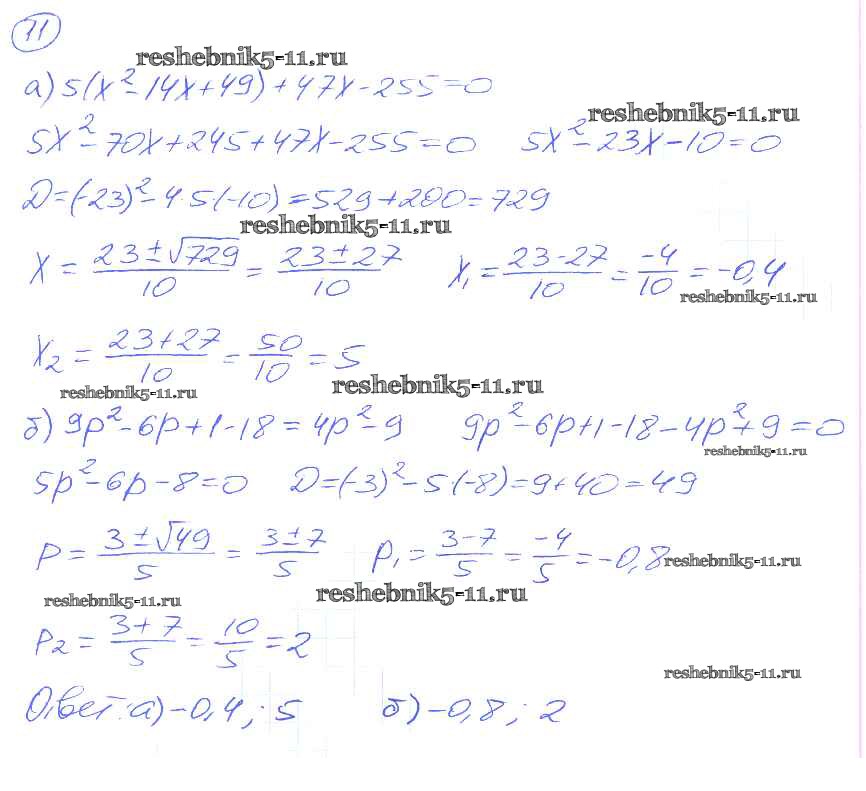 11
reshebnik5-11.ru
а) 5(x²-14x+49)+47x-255=0
reshebnik5-11.ru
5x²-70x+245+47x-255=0 5x²-23x-10=0
D=(-23)²-4·5(-10)=529+200=729
reshebnik5-11.ru
x = (23±√729)/10 = (23±27)/10 x₁ = (23-27)/10 = -4/10 = -0,4
reshebnik5-11.ru
x₂ = (23+27)/10 = 50/10 = 5
reshebnik5-11.ru reshebnik5-11.ru
б) 9p²-6p+1-18=4p²-9 9p²-6p+1-18-4p²+9=0
reshebnik5-11.ru
5p²-6p-8=0 D=(-3)²-5·(-8)=9+40=49
p = (3±√49)/5 = (3±7)/5 p₁ = (3-7)/5 = -4/5 = -0,8
reshebnik5-11.ru
reshebnik5-11.ru reshebnik5-11.ru
p₂ = (3+7)/5 = 10/5 = 2
reshebnik5-11.ru
Ответ: а) -0,4; 5 б) -0,8; 2